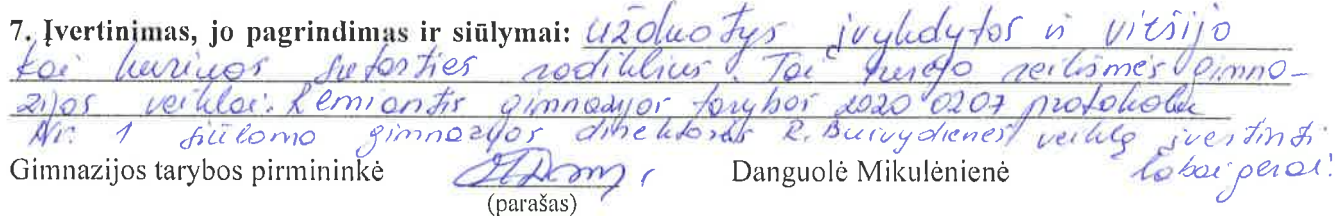 7. Įvertinimas, jo pagrindimas ir siūlymai: Užduotys įvykdytos ir viršijo
kai kuriuos sutarties rodiklius. Tai turėjo reikšmės gimna-
zijos veiklai. Remiantis gimnazijos tarybos 2020 0207 protokolu
Nr. 1 siūloma gimnazijos direktorės R. Buivydienės veiklą įvertinti
labai gerai.
Gimnazijos tarybos pirmininkė Danguolė Mikulėnienė
(parašas)